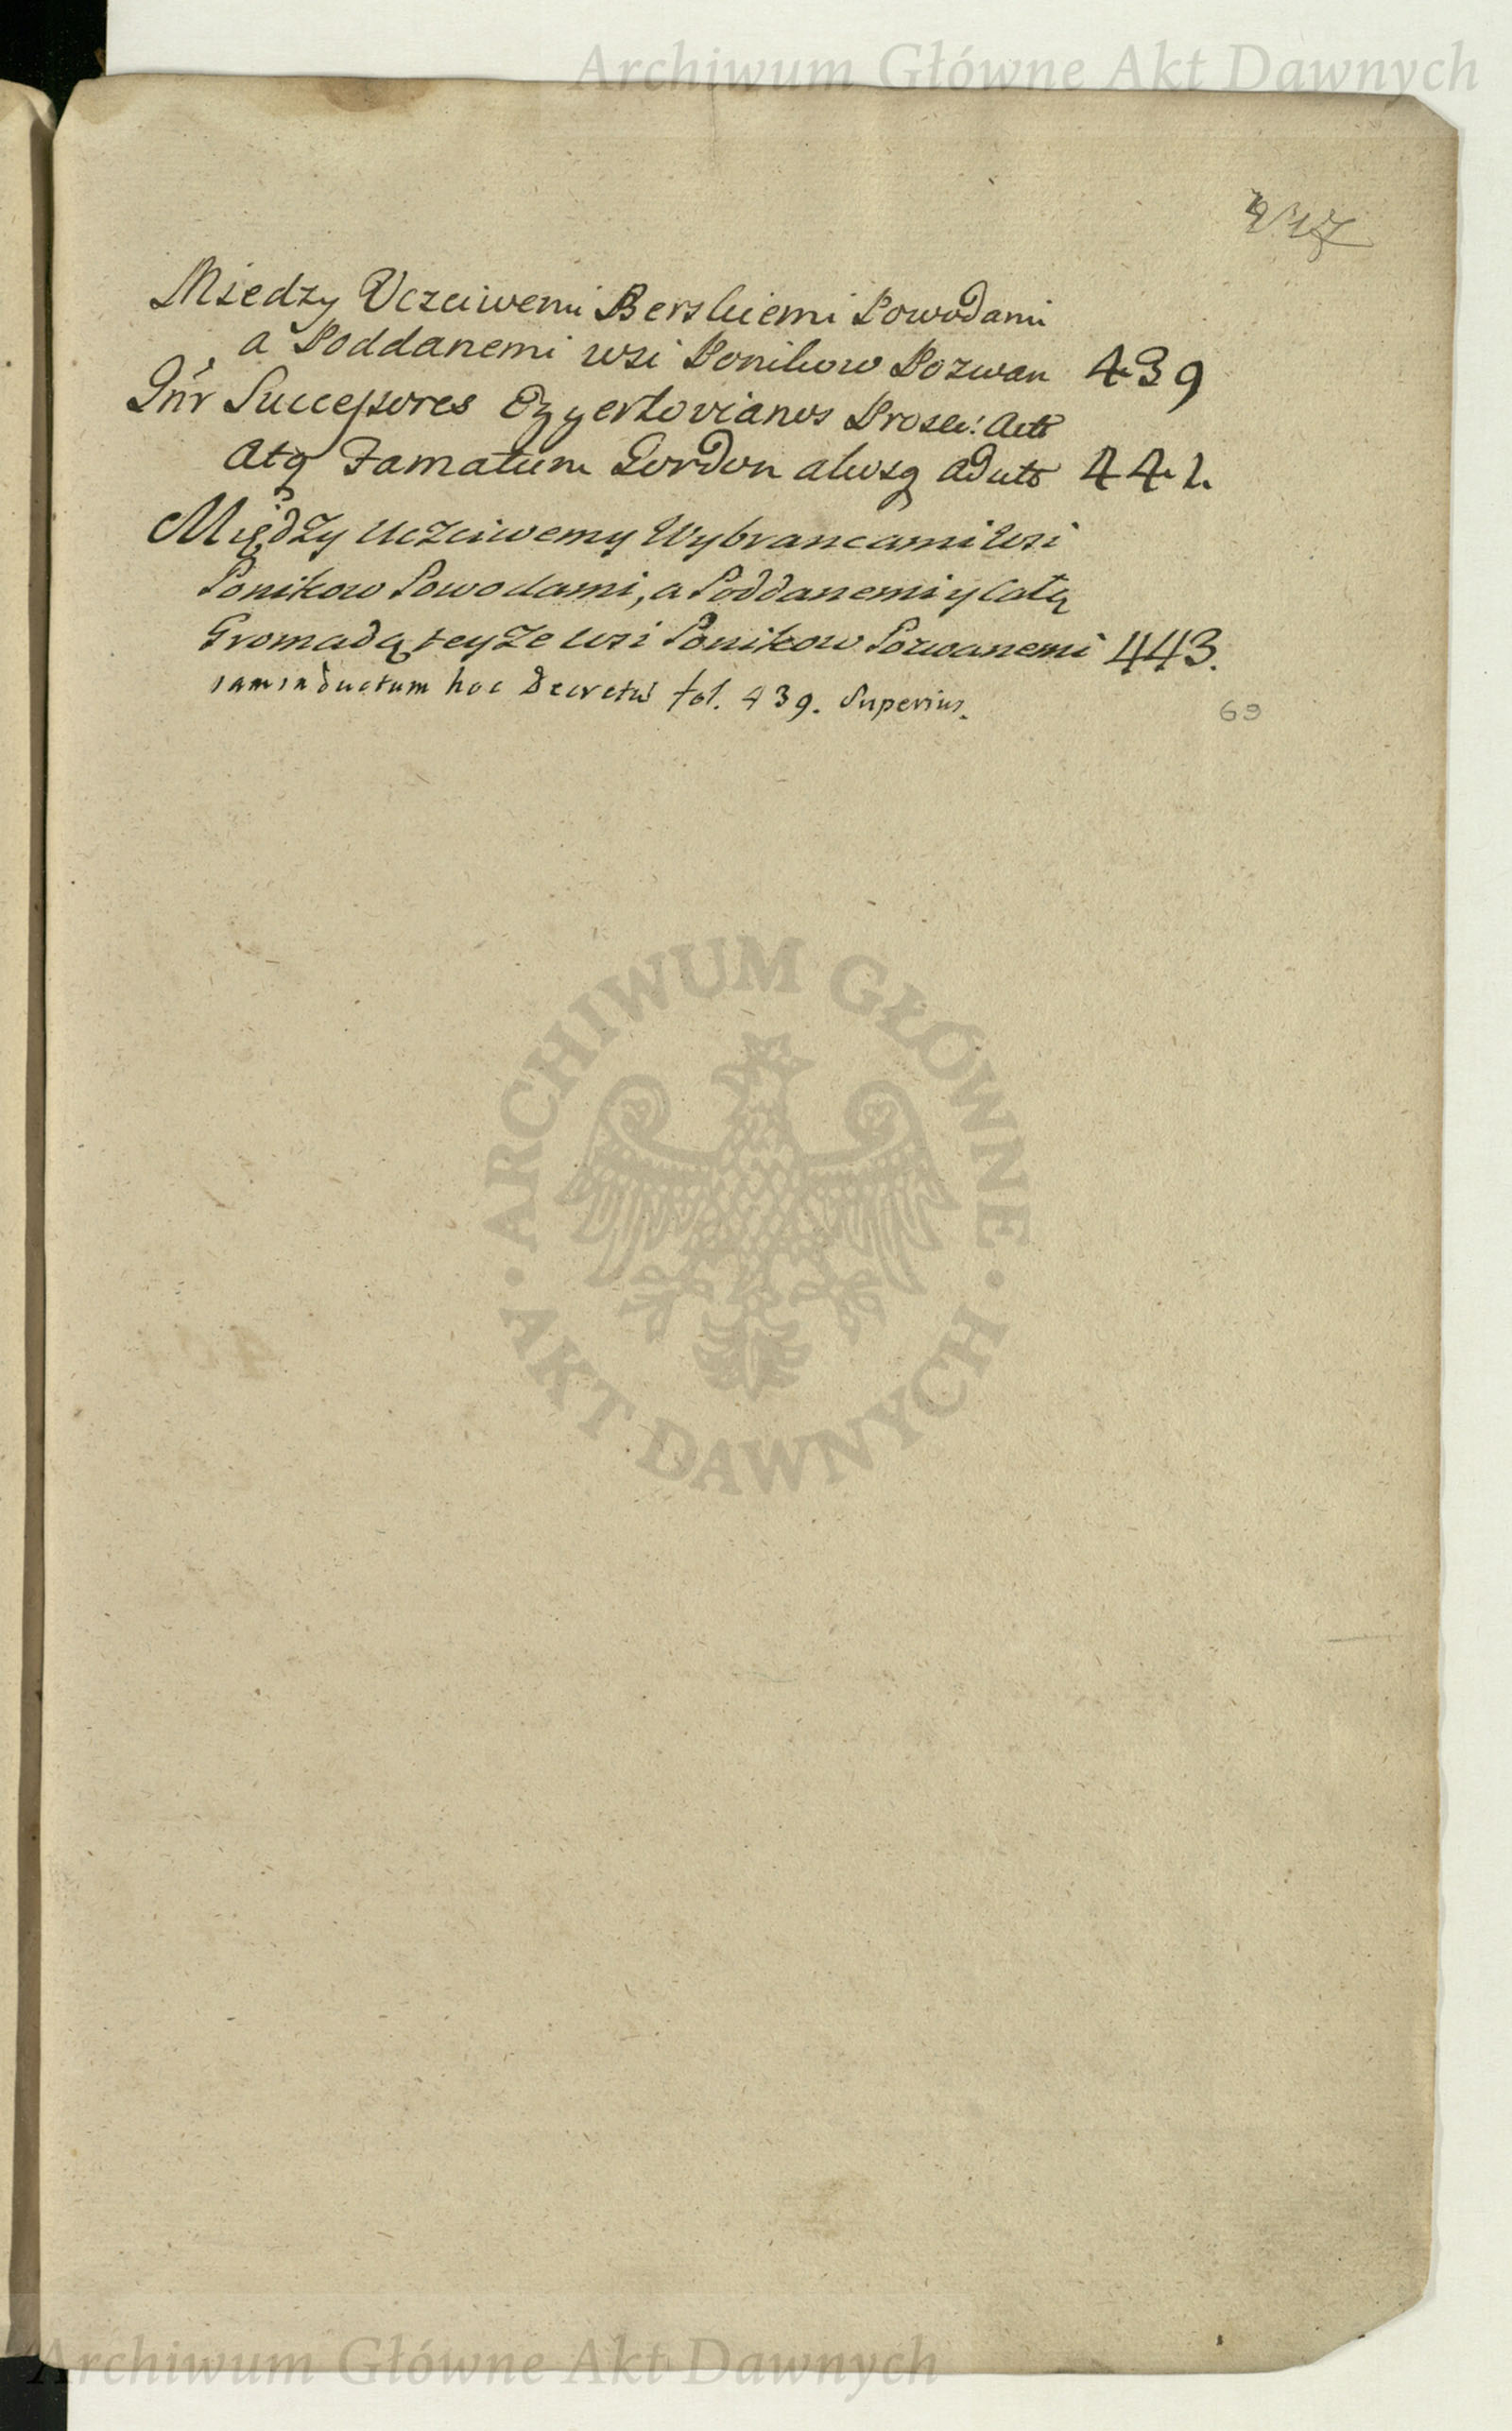 Archiwum Główne Akt Dawnych
Miedzy Uczciwemi Berskiemi Powodami
a Poddanemi wsi Ponikow Pozwan 439
Inr Successores Ozyertovianos Prosec: Act
Atq Famatum Gordon aliosq aduts 441.
Między Uczciwemy Wybrancami wsi
Ponikow Powodami, a Poddanemi y całą
Gromadą teyże wsi Ponikow Pozwanemi 443.
iam inductum hoc Decretū fol. 439. Superius.
69
ARCHIWUM GŁÓWNE · AKT DAWNYCH ·
Archiwum Główne Akt Dawnych